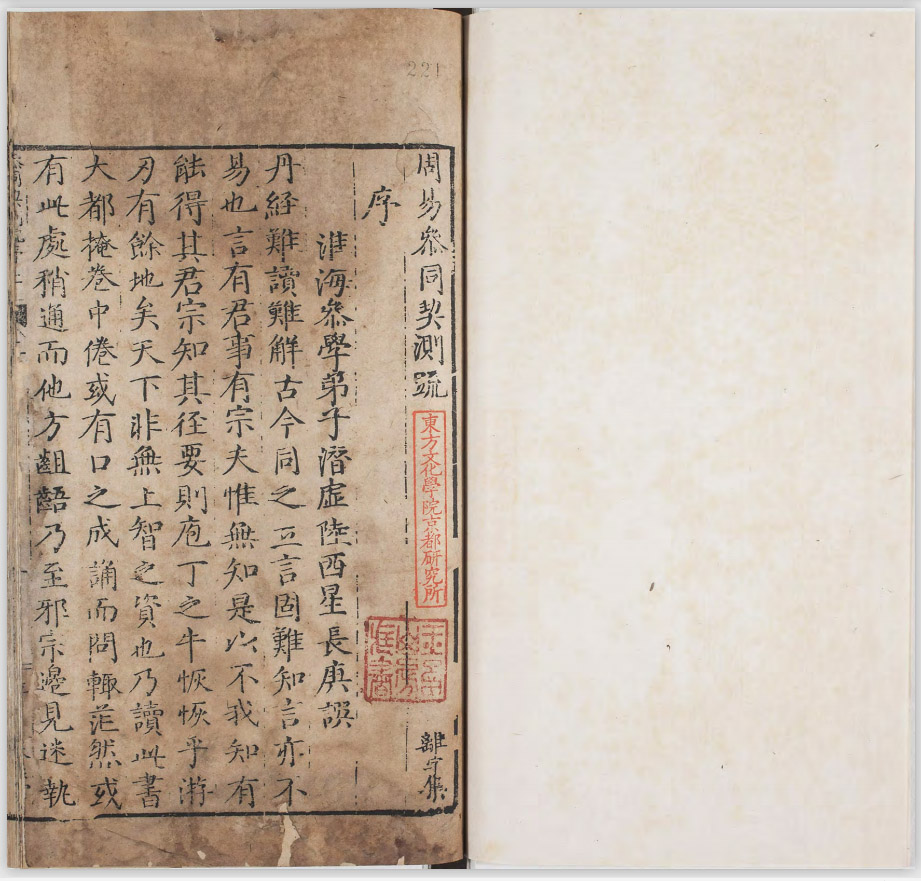 221
周易叅同契測疏
東方文化學院京都研究所
離字集
序
淮海叅學弟子潛虛陸西星長庚譔
丹經難讀難觧古今同之立言固難知言亦不
易也言有君事有宗夫惟無知是以不我知有
能得其君宗知其径要則庖丁之牛恢恢乎游
刃有餘地矣天下非無上智之資也乃讀此書
大都掩巻中倦或有口之成誦而問輒茫然或
有此處稍通而他方齟齬乃至邪宗邊見迷執